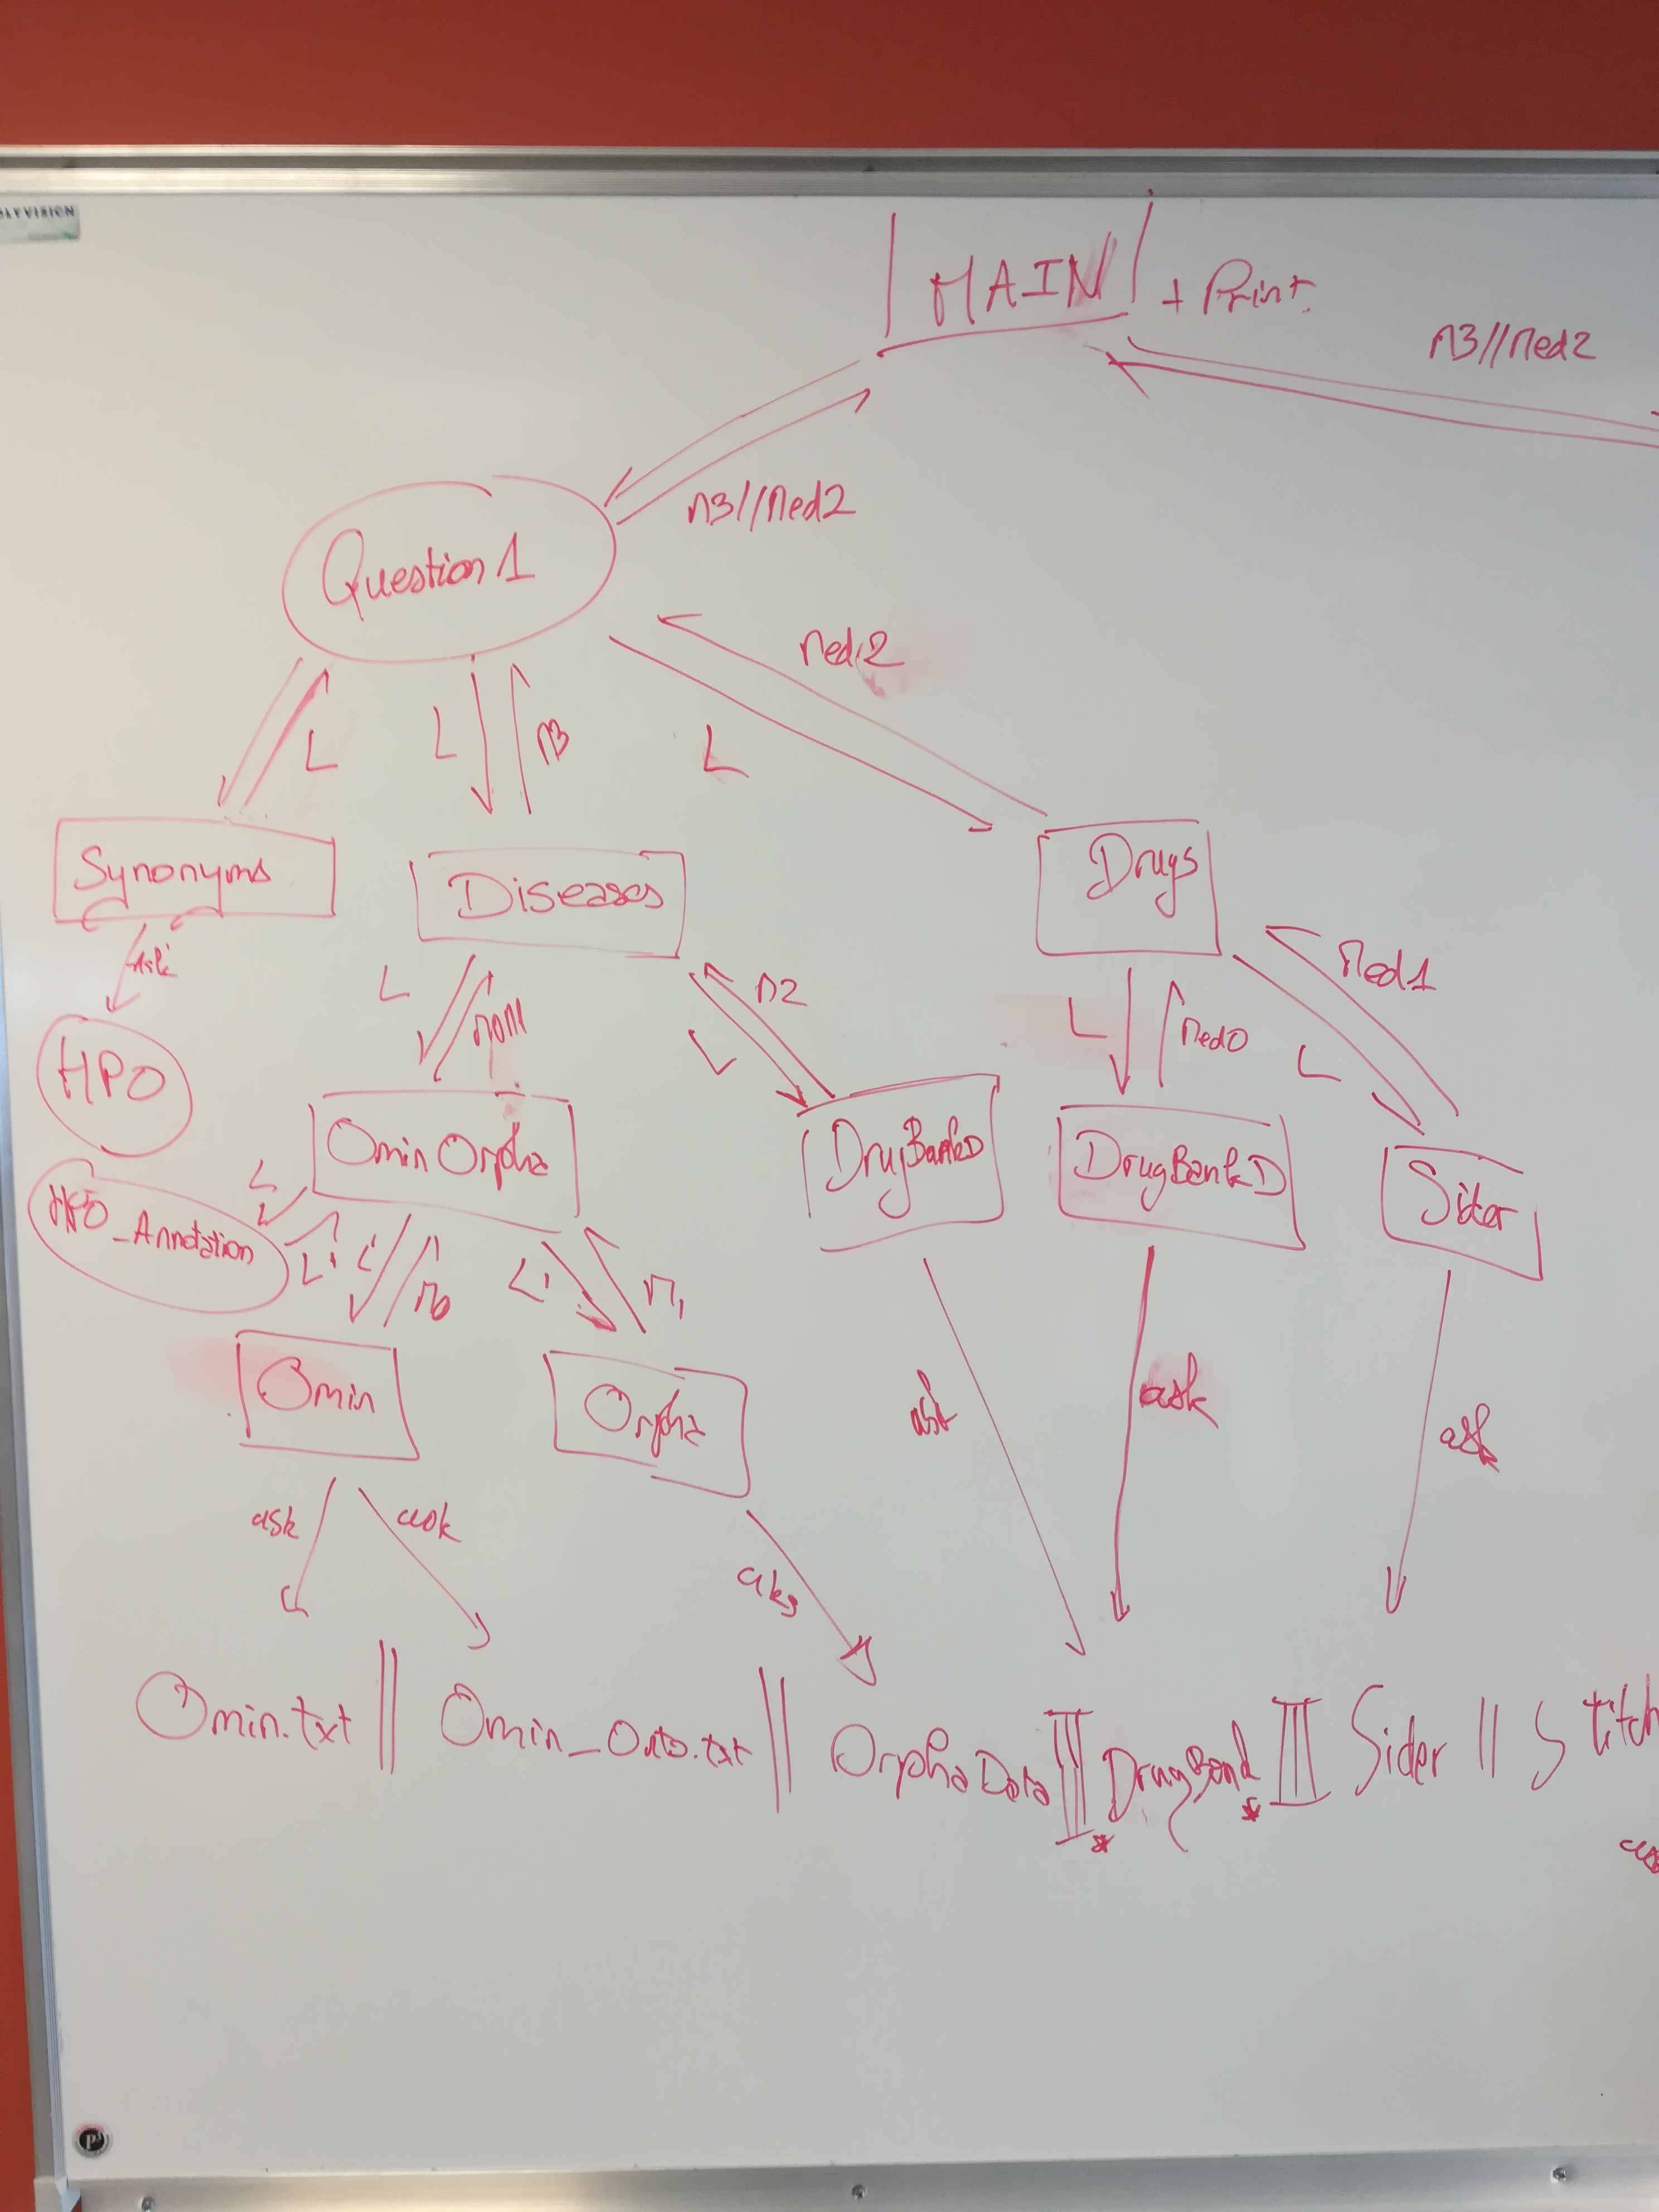 MAIN + Print
n3//Med2
n3//Med2
Question 1
Med2
L
L
M3
L
Synonyms
Diseases
Drugs
ask
L
M2
L
Med1
L
Med0
L
HPO
OminOrpha
DrugBankD
DrugBankD
Sider
HPO_Annotation
L
L'
L'
M0
L'
M1
Omin
Orpha
ask
ask
ask
ask
ask
Omin.txt || Omin_Onto.txt || OrphaData || DrugBank || Sider || Stitch